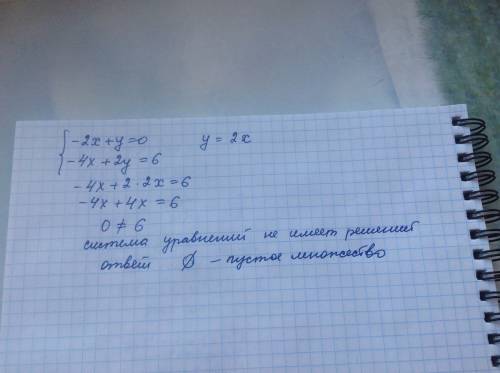 { -2x+y=0    y = 2x
-4x+2y=6
-4x+2·2x=6
-4x+4x=6
0≠6
система уравнений не имеет решений
ответ ∅ – пустое множество